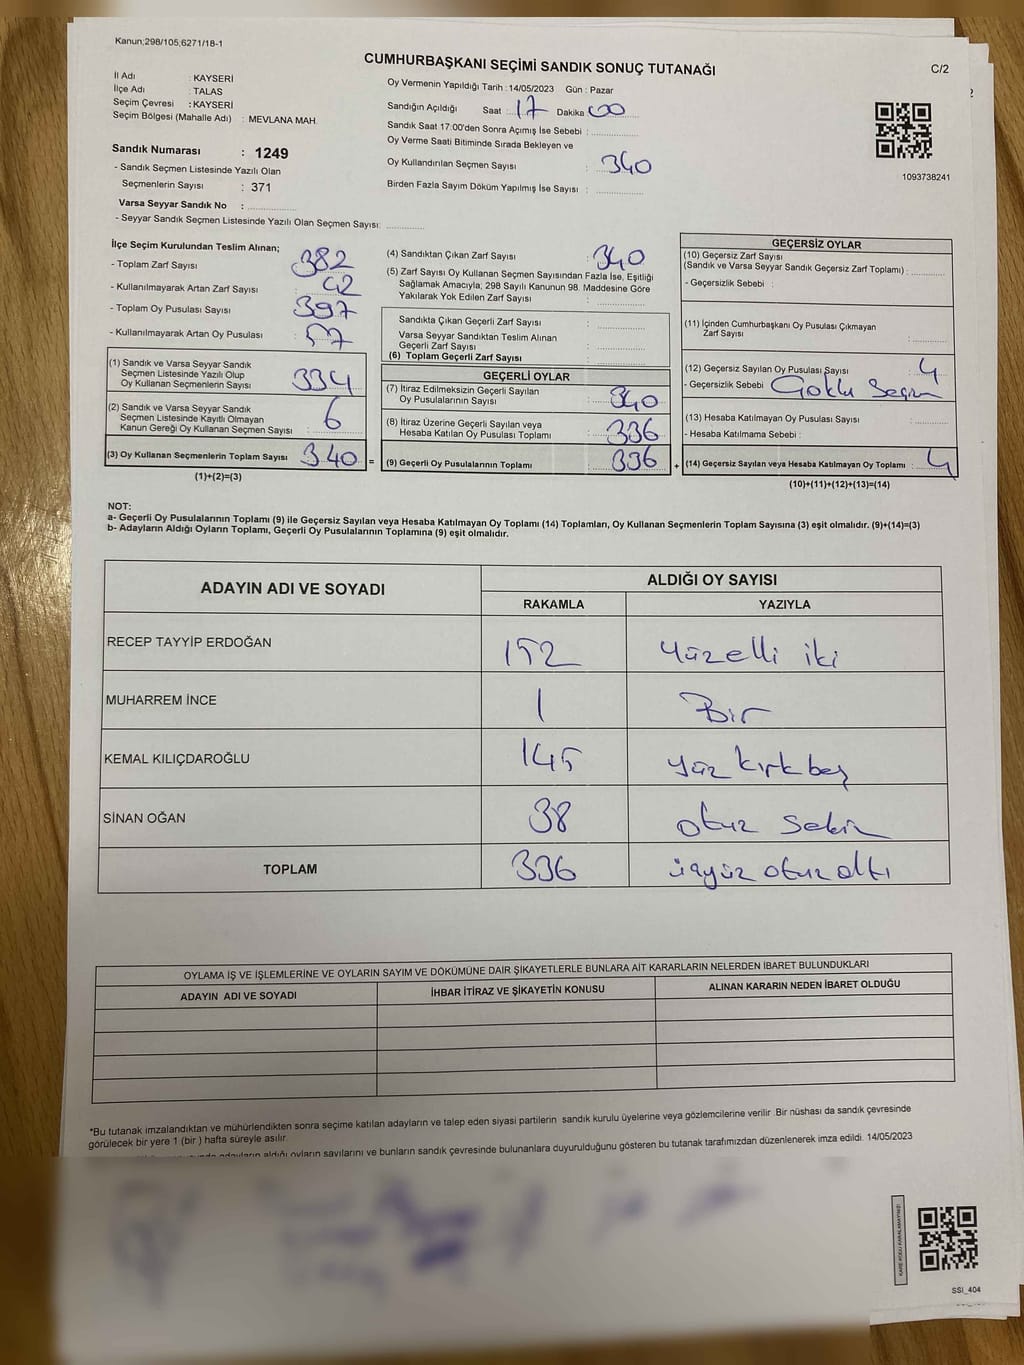 Kanun;298/105,6271/18-1
CUMHURBAŞKANI SEÇİMİ SANDIK SONUÇ TUTANAĞI
C/2
İl Adı : KAYSERİ
İlçe Adı : TALAS
Seçim Çevresi : KAYSERİ
Seçim Bölgesi (Mahalle Adı) : MEVLANA MAH.
Sandık Numarası : 1249
- Sandık Seçmen Listesinde Yazılı Olan
Seçmenlerin Sayısı : 371
Varsa Seyyar Sandık No :
- Seyyar Sandık Seçmen Listesinde Yazılı Olan Seçmen Sayısı:
Oy Vermenin Yapıldığı Tarih : 14/05/2023 Gün : Pazar
Sandığın Açıldığı Saat : 17 Dakika 00
Sandık Saat 17:00'den Sonra Açımış İse Sebebi :
Oy Verme Saati Bitiminde Sırada Bekleyen ve
Oy Kullandırılan Seçmen Sayısı : 340
Birden Fazla Sayım Döküm Yapılmış İse Sayısı :
1093738241
İlçe Seçim Kurulundan Teslim Alınan;
- Toplam Zarf Sayısı : 382
- Kullanılmayarak Artan Zarf Sayısı : 42
- Toplam Oy Pusulası Sayısı : 397
- Kullanılmayarak Artan Oy Pusulası : 57
(1) Sandık ve Varsa Seyyar Sandık
Seçmen Listesinde Yazılı Olup
Oy Kullanan Seçmenlerin Sayısı : 334
(2) Sandık ve Varsa Seyyar Sandık
Seçmen Listesinde Kayıtlı Olmayan
Kanun Gereği Oy Kullanan Seçmen Sayısı : 6
(3) Oy Kullanan Seçmenlerin Toplam Sayısı : 340 =
(1)+(2)=(3)
(4) Sandıktan Çıkan Zarf Sayısı : 340
(5) Zarf Sayısı Oy Kullanan Seçmen Sayısından Fazla İse, Eşitliği
Sağlamak Amacıyla; 298 Sayılı Kanunun 98. Maddesine Göre
Yakılarak Yok Edilen Zarf Sayısı :
Sandıkta Çıkan Geçerli Zarf Sayısı :
Varsa Seyyar Sandıktan Teslim Alınan
Geçerli Zarf Sayısı :
(6) Toplam Geçerli Zarf Sayısı :
GEÇERLİ OYLAR
(7) İtiraz Edilmeksizin Geçerli Sayılan
Oy Pusulalarının Sayısı : 340
(8) İtiraz Üzerine Geçerli Sayılan veya
Hesaba Katılan Oy Pusulası Toplamı : 336
(9) Geçerli Oy Pusulalarının Toplamı : 336 +
GEÇERSİZ OYLAR
(10) Geçersiz Zarf Sayısı
(Sandık ve Varsa Seyyar Sandık Geçersiz Zarf Toplamı) :
- Geçersizlik Sebebi :
(11) İçinden Cumhurbaşkanı Oy Pusulası Çıkmayan
Zarf Sayısı :
(12) Geçersiz Sayılan Oy Pusulası Sayısı : 4
- Geçersizlik Sebebi : Çoklu Seçim
(13) Hesaba Katılmayan Oy Pusulası Sayısı :
- Hesaba Katılmama Sebebi :
(14) Geçersiz Sayılan veya Hesaba Katılmayan Oy Toplamı : 4
(10)+(11)+(12)+(13)=(14)
NOT:
a- Geçerli Oy Pusulalarının Toplamı (9) ile Geçersiz Sayılan veya Hesaba Katılmayan Oy Toplamı (14) Toplamları, Oy Kullanan Seçmenlerin Toplam Sayısına (3) eşit olmalıdır. (9)+(14)=(3)
b- Adayların Aldığı Oyların Toplamı, Geçerli Oy Pusulalarının Toplamına (9) eşit olmalıdır.
ADAYIN ADI VE SOYADI
ALDIĞI OY SAYISI
RAKAMLA YAZIYLA
RECEP TAYYİP ERDOĞAN 152 Yüzelli iki
MUHARREM İNCE 1 Bir
KEMAL KILIÇDAROĞLU 145 yüz kırk beş
SİNAN OĞAN 38 otuz sekiz
TOPLAM 336 üçyüz otuz altı
OYLAMA İŞ VE İŞLEMLERİNE VE OYLARIN SAYIM VE DÖKÜMÜNE DAİR ŞİKAYETLERLE BUNLARA AİT KARARLARIN NELERDEN İBARET BULUNDUKLARI
ADAYIN ADI VE SOYADI İHBAR İTİRAZ VE ŞİKAYETİN KONUSU ALINAN KARARIN NEDEN İBARET OLDUĞU
*Bu tutanak imzalandıktan ve mühürlendikten sonra seçime katılan adayların ve talep eden siyasi partilerin sandık kurulu üyelerine veya gözlemcilerine verilir. Bir nüshası da sandık çevresinde
görülecek bir yere 1 (bir ) hafta süreyle asılır.
adayların aldığı oyların sayılarını ve bunların sandık çevresinde bulunanlara duyurulduğunu gösteren bu tutanak tarafımızdan düzenlenerek imza edildi. 14/05/2023
SSİ_404